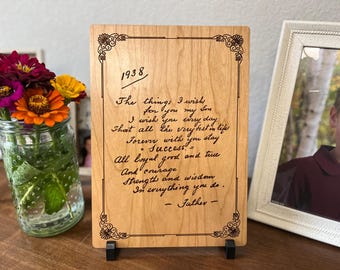 1938
The things I wish
for you my Son
I wish you every day
That all the very best in life
Forever with you stay
"Success,"
All loyal good and true
And courage
Strength and wisdom
In everything you do.
- Father -